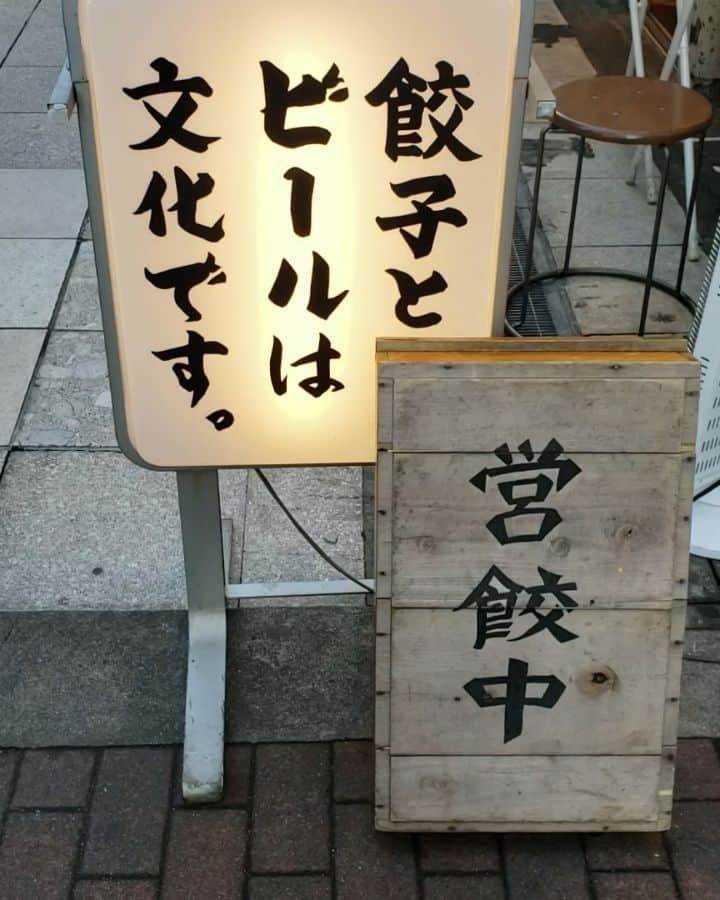 餃子と
ビールは
文化です。
営餃中